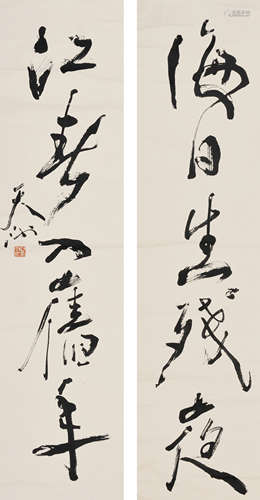 海日生残夜
江春入旧年
天如